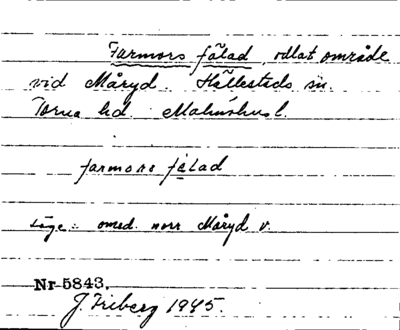 Farmors fälad, odlat område
vid Måryd. Hällestads sn.
Torna hd. Malmöhus l.
farmors fälad
Läge: omed. norr Måryd v.
Nr 5843.
J. Friberg 1945.